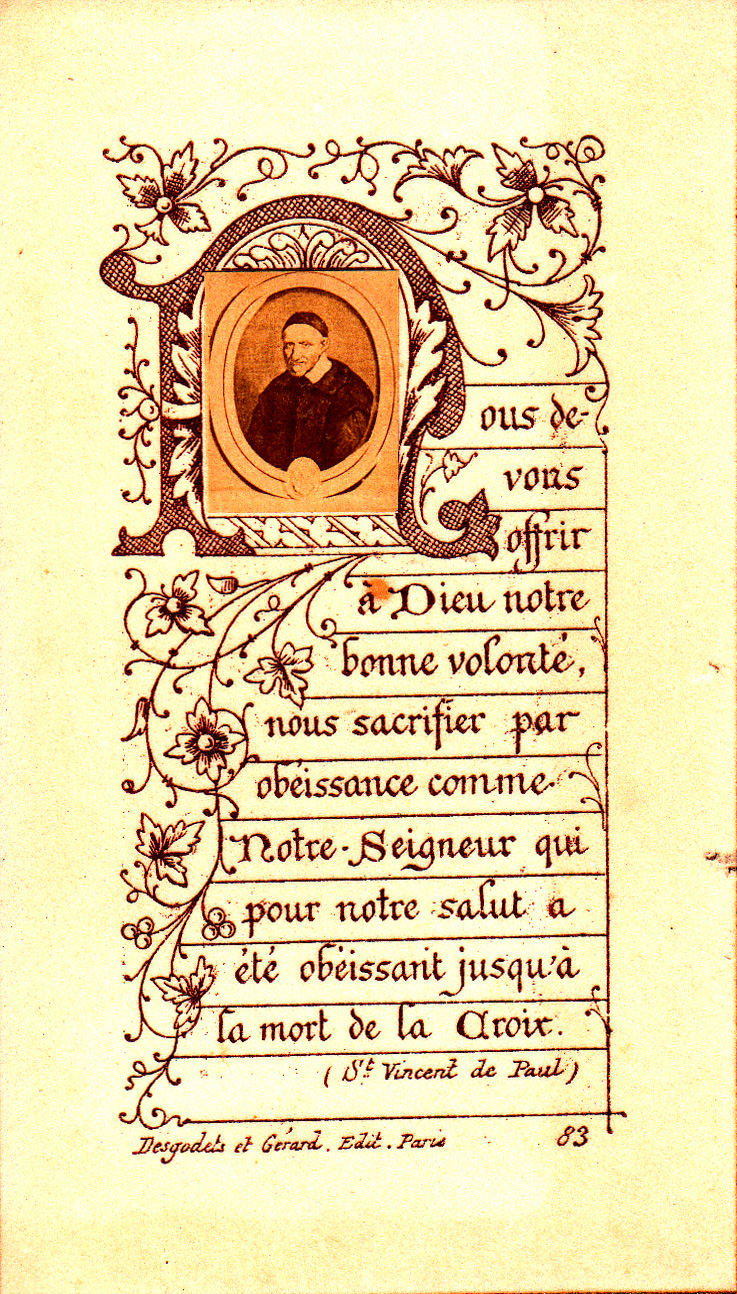 Nous de-
vons
offrir
à Dieu notre
bonne volonté,
nous sacrifier par
obéissance comme
Notre-Seigneur qui
pour notre salut a
été obéissant jusqu'à
la mort de la Croix.
(St Vincent de Paul)
Desgodets et Gérard. Edit. Paris 83